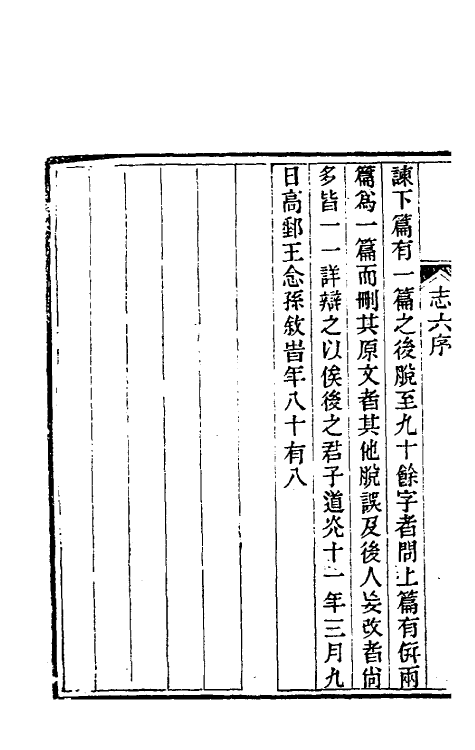 志六序
諫下篇有一篇之後脫至九十餘字者問上篇有倂兩
篇爲一篇而刪其原文者其他脫誤及後人妄改者尙
多皆一一詳辯之以俟後之君子道光十一年三月九
日高郵王念孫敘旹年八十有八